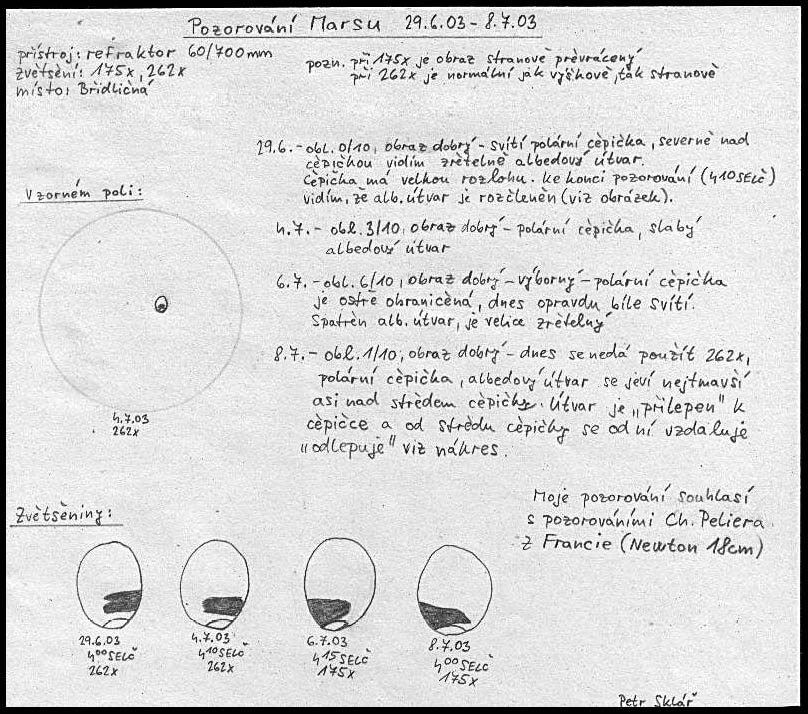 Pozorování Marsu 29.6.03 - 8.7.03
přístroj: refraktor 60/700mm
zvětšení: 175x, 262x
místo: Břidličná
pozn. při 175x je obraz stranově převrácený
při 262x je normální jak výškově, tak stranově
29.6. - obl. 0/10, obraz dobrý - svítí polární čepička, severně nad
čepičkou vidím zřetelně albedový útvar.
Čepička má velkou rozlohu. Ke konci pozorování (4 10 SELČ)
vidím, že alb. útvar je rozčleněn (viz obrázek).
4.7. - obl. 3/10, obraz dobrý - polární čepička, slabý
albedový útvar
6.7. - obl. 6/10, obraz dobrý - výborný - polární čepička
je ostře ohraničená, dnes opravdu bíle svítí.
Spatřen alb. útvar, je velice zřetelný
8.7. - obl. 1/10, obraz dobrý - dnes se nedá použít 262x,
polární čepička, albedový útvar se jeví nejtmavší
asi nad středem čepičky. Útvar je „přilepen" k
čepičce a od středu čepičky se od ní vzdaluje
„odlepuje" viz nákres.
V zorném poli:
4.7.03
262x
Moje pozorování souhlasí
s pozorováními Ch. Peliera
z Francie (Newton 18cm)
Zvětšeniny:
29.6.03
4 00 SELČ
262x
4.7.03
4 10 SELČ
262x
6.7.03
4 15 SELČ
175x
8.7.03
4 00 SELČ
175x
Petr Sklář